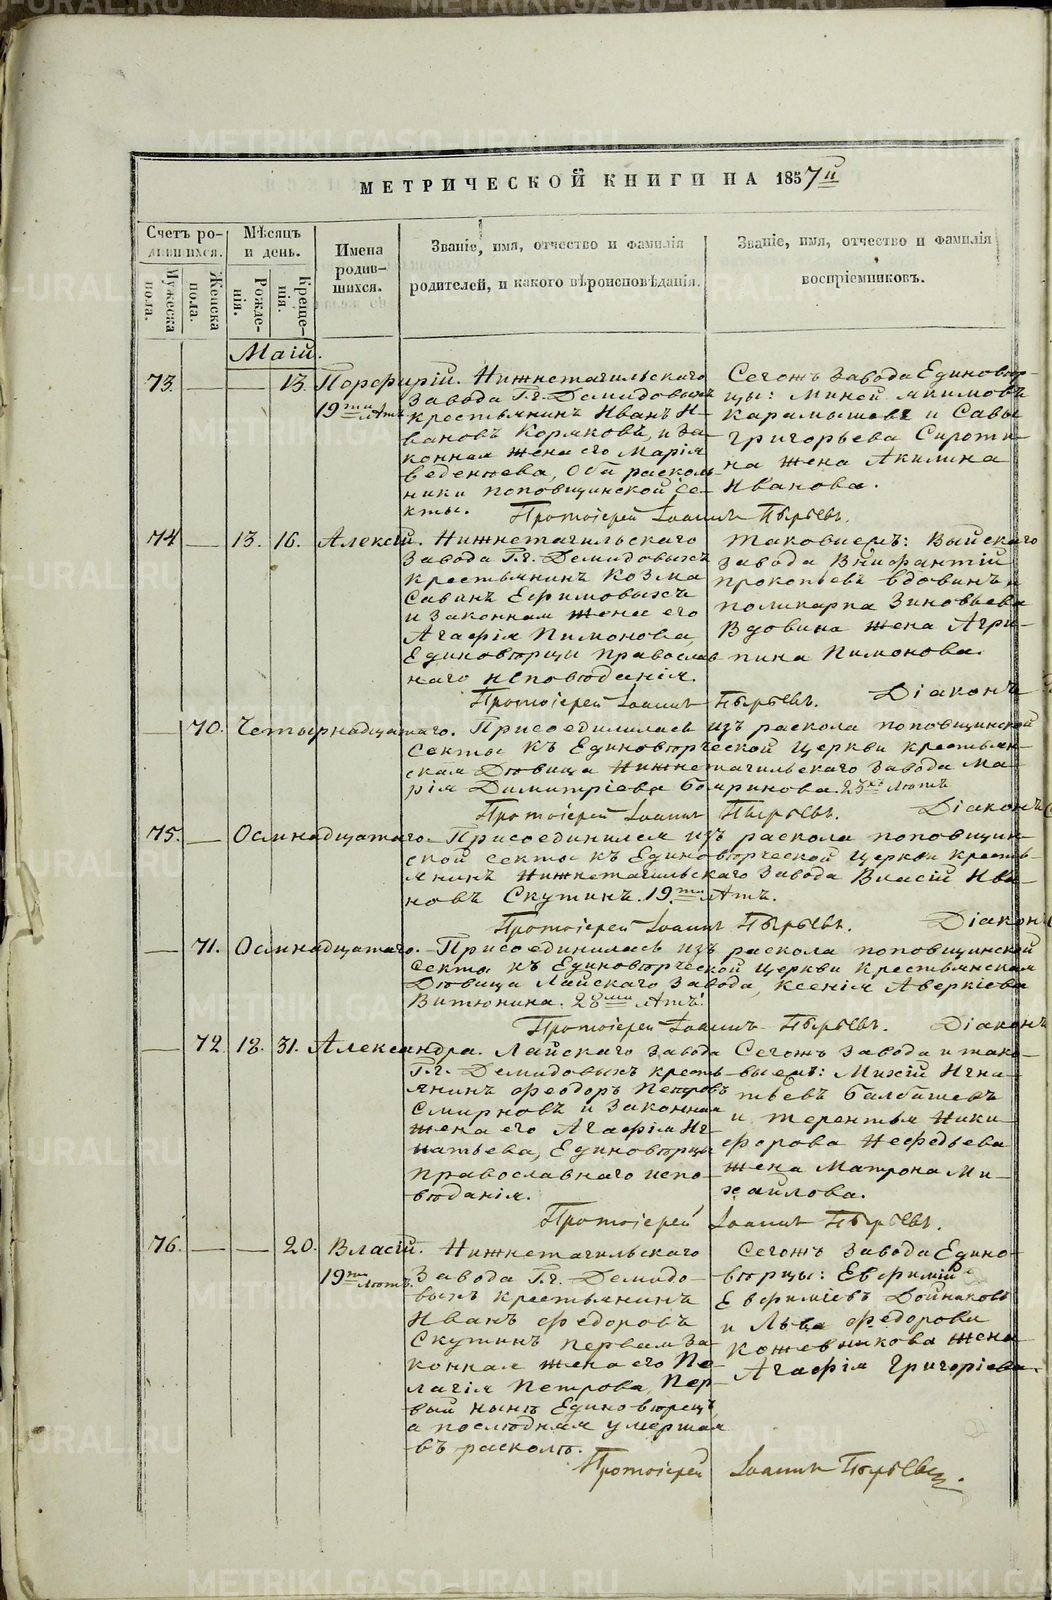 МЕТРИЧЕСКОЙ КНИГИ НА 1857й
Счетъ ро-
дившихся.
Мѣсяцъ
и день.
Имена
родив-
шихся.
Званіе, имя, отчество и фамилія
родителей, и какого вѣроисповѣданія.
Званіе, имя, отчество и фамилія
воспріемниковъ.
Мужеска
пола.
Женска
пола.
Рожде-
нія.
Креще-
нія.
Маій.
73. — — 13. Порфирій.
19ти лѣтъ
Нижнетагильскаго
Завода Г.г. Демидовыхъ
крестьянинъ Иванъ И-
вановъ Коряковъ, и за-
конная жена его Марія
Веденѣева, Оба расколь-
ники поповщинской се-
кты.
Сегожъ Завода Единовѣр-
цы: Миней Якимовъ
Карамышевъ и Савы
Григорьева Сироти-
на жена Акилина
Иванова.
Протоіерей Іоаннъ Пырьевъ.
74 — 13. 16. Алексій.
Нижнетагильскаго
Завода Г.г. Демидовыхъ
крестьянинъ Козма
Савинъ Ефимовыхъ
и Законная жена его
Агафія Пимонова,
Единовѣрцы православ
наго исповѣданія.
Таковыежъ: Выйскаго
Завода Внифантій
Прокопьевъ Вдовинъ и
Поликарпа Зиновьева
Вдовина жена Агри-
пина Пимонова.
Протоіерей Іоаннъ Пырьевъ. Діаконъ
— 70. Четырнадцатаго. Присоединилась изъ раскола поповщинской
секты къ Единовѣрческой церкви крестьян-
ская Дѣвица Нижнетагильскаго Завода Ма-
рія Димитріева Бояринова. 23хъ лѣтъ
Протоіерей Іоаннъ Пырьевъ. Діаконъ
75. — Осмнадцатаго. Присоединился изъ раскола поповщин-
ской секты къ Единовѣрческой церкви кресть-
янинъ Нижнетагильскаго Завода Власій Ива-
новъ Скутинъ. 19ти лѣтъ.
Протоіерей Іоаннъ Пырьевъ. Діаконъ
— 71. Осмнадцатаго. Присоединилась изъ раскола поповщинской
секты къ Единовѣрческой церкви крестьянская
Дѣвица Лайскаго Завода, Ксенія Аверкіева
Витюнина. 28ми лѣтъ.
Протоіерей Іоаннъ Пырьевъ. Діаконъ
— 72. 18. 31. Александра.
Лайскаго Завода
Г.г. Демидовыхъ кресть-
янинъ Феодоръ Петровъ
Смирновъ и Законная
жена его Агафія Иг-
натьева, Единовѣрцы
Православнаго испо-
вѣданія.
Сегожъ Завода и тако-
выежъ: Михѣй Игна-
тьевъ Балбашевъ
и Терентья Ники-
форова Нефедьева
жена Матрона Ми-
хаилова.
Протоіерей Іоаннъ Пырьевъ.
76. — — 20. Власій.
19ти лѣтъ.
Нижнетагильскаго
Завода Г.г. Демидо-
выхъ крестьянинъ
Иванъ Федоровъ
Скутинъ первая за-
конная жена его Пе-
лагія Петрова, Пер-
вый нынѣ Единовѣрецъ
а послѣдняя умершая
въ расколѣ.
Сегожъ Завода Едино-
вѣрцы: Евфимій
Евфиміевъ Дойниковъ
и Льва Федорова
Кожевникова жена
Агафія Григоріева.
Протоіерей Іоаннъ Пырьевъ.
METRIKI.GASO-URAL.RU